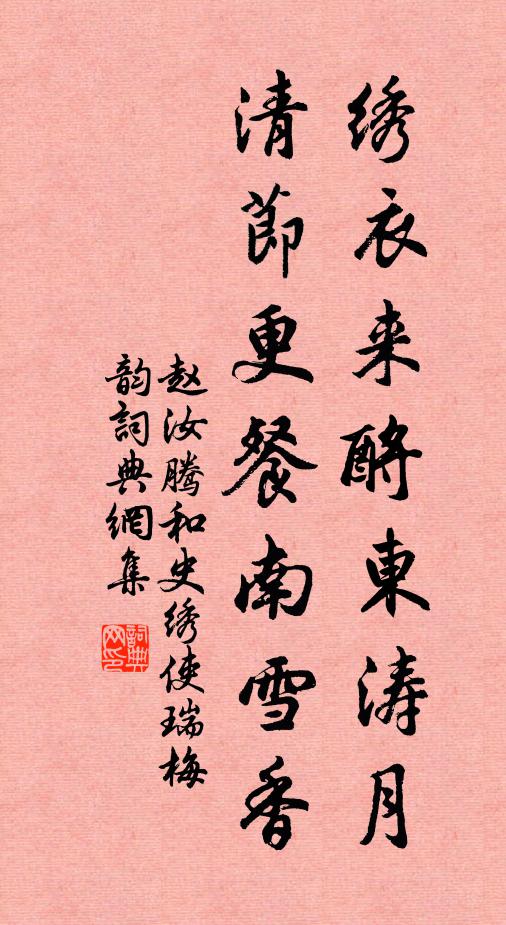 绣衣来酹東涛月
清節更餐南雪香
赵汝腾和史绣使瑞梅
韵詞典網集
詞典网印